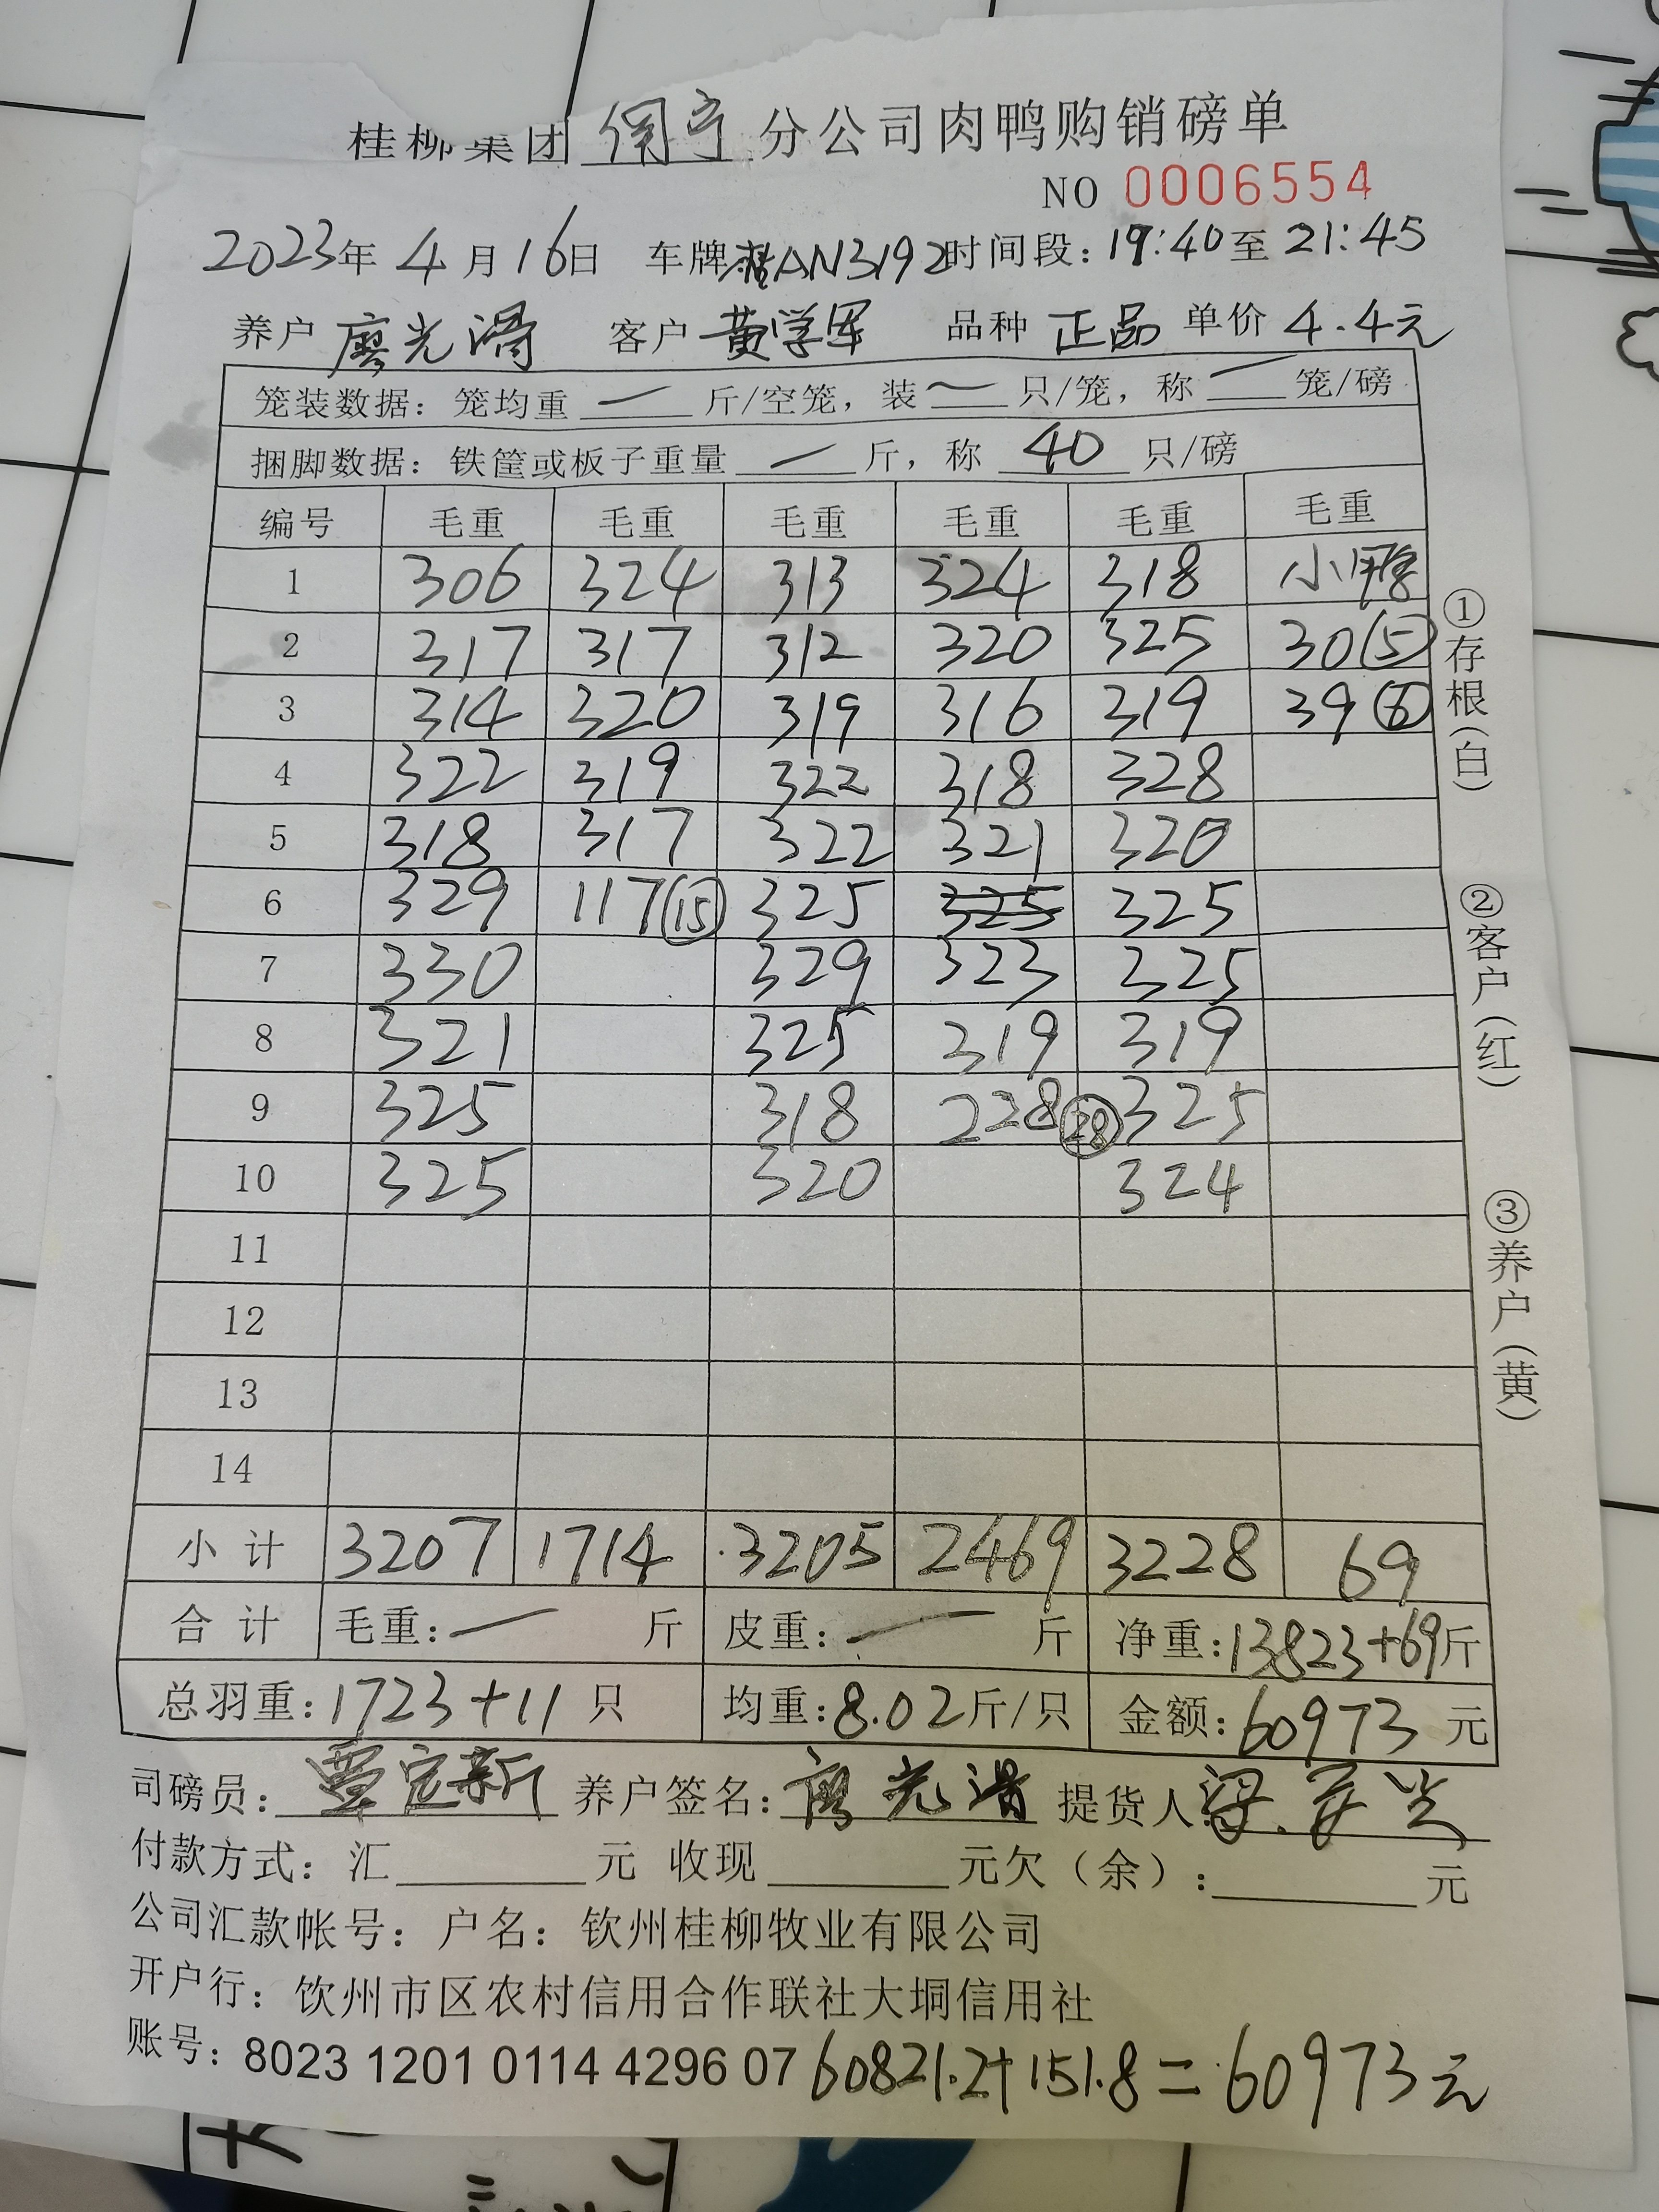 桂柳集团 南宁 分公司肉鸭购销磅单
NO 0006554
2023年 4月 16日 车牌 AN3192 时间段：19:40至 21:45
养户 廖光滑 客户 黄学军 品种 正品 单价 4.4元
笼装数据：笼均重 一 斤/空笼，装 一 只/笼，称 一 笼/磅
捆脚数据：铁筐或板子重量 一 斤，称 40 只/磅
编号 毛重 毛重 毛重 毛重 毛重 毛重
1 306 324 313 324 318 小鸭
2 317 317 312 320 325 30(5)
3 314 320 319 316 319 39(6)
4 322 319 322 318 328
5 318 317 322 321 320
6 329 117(15) 325 325 325
7 330 329 323 325
8 321 325 319 319
9 325 318 228(28) 325
10 325 320 324
11
12
13
14
小计 3207 1714 3205 2469 3228 69
合计 毛重：一 斤 皮重：一 斤 净重：13823+69斤
总羽重：1723+11 只 均重：8.02斤/只 金额：60973 元
司磅员：覃定新 养户签名：廖光滑 提货人：梁
付款方式：汇 元 收现 元欠（余）： 元
公司汇款帐号：户名：钦州桂柳牧业有限公司
开户行：钦州市区农村信用合作联社大垌信用社
账号：8023 1201 0114 4296 07 60821.2+151.8=60973元
①存根(白)
②客户(红)
③养户(黄)